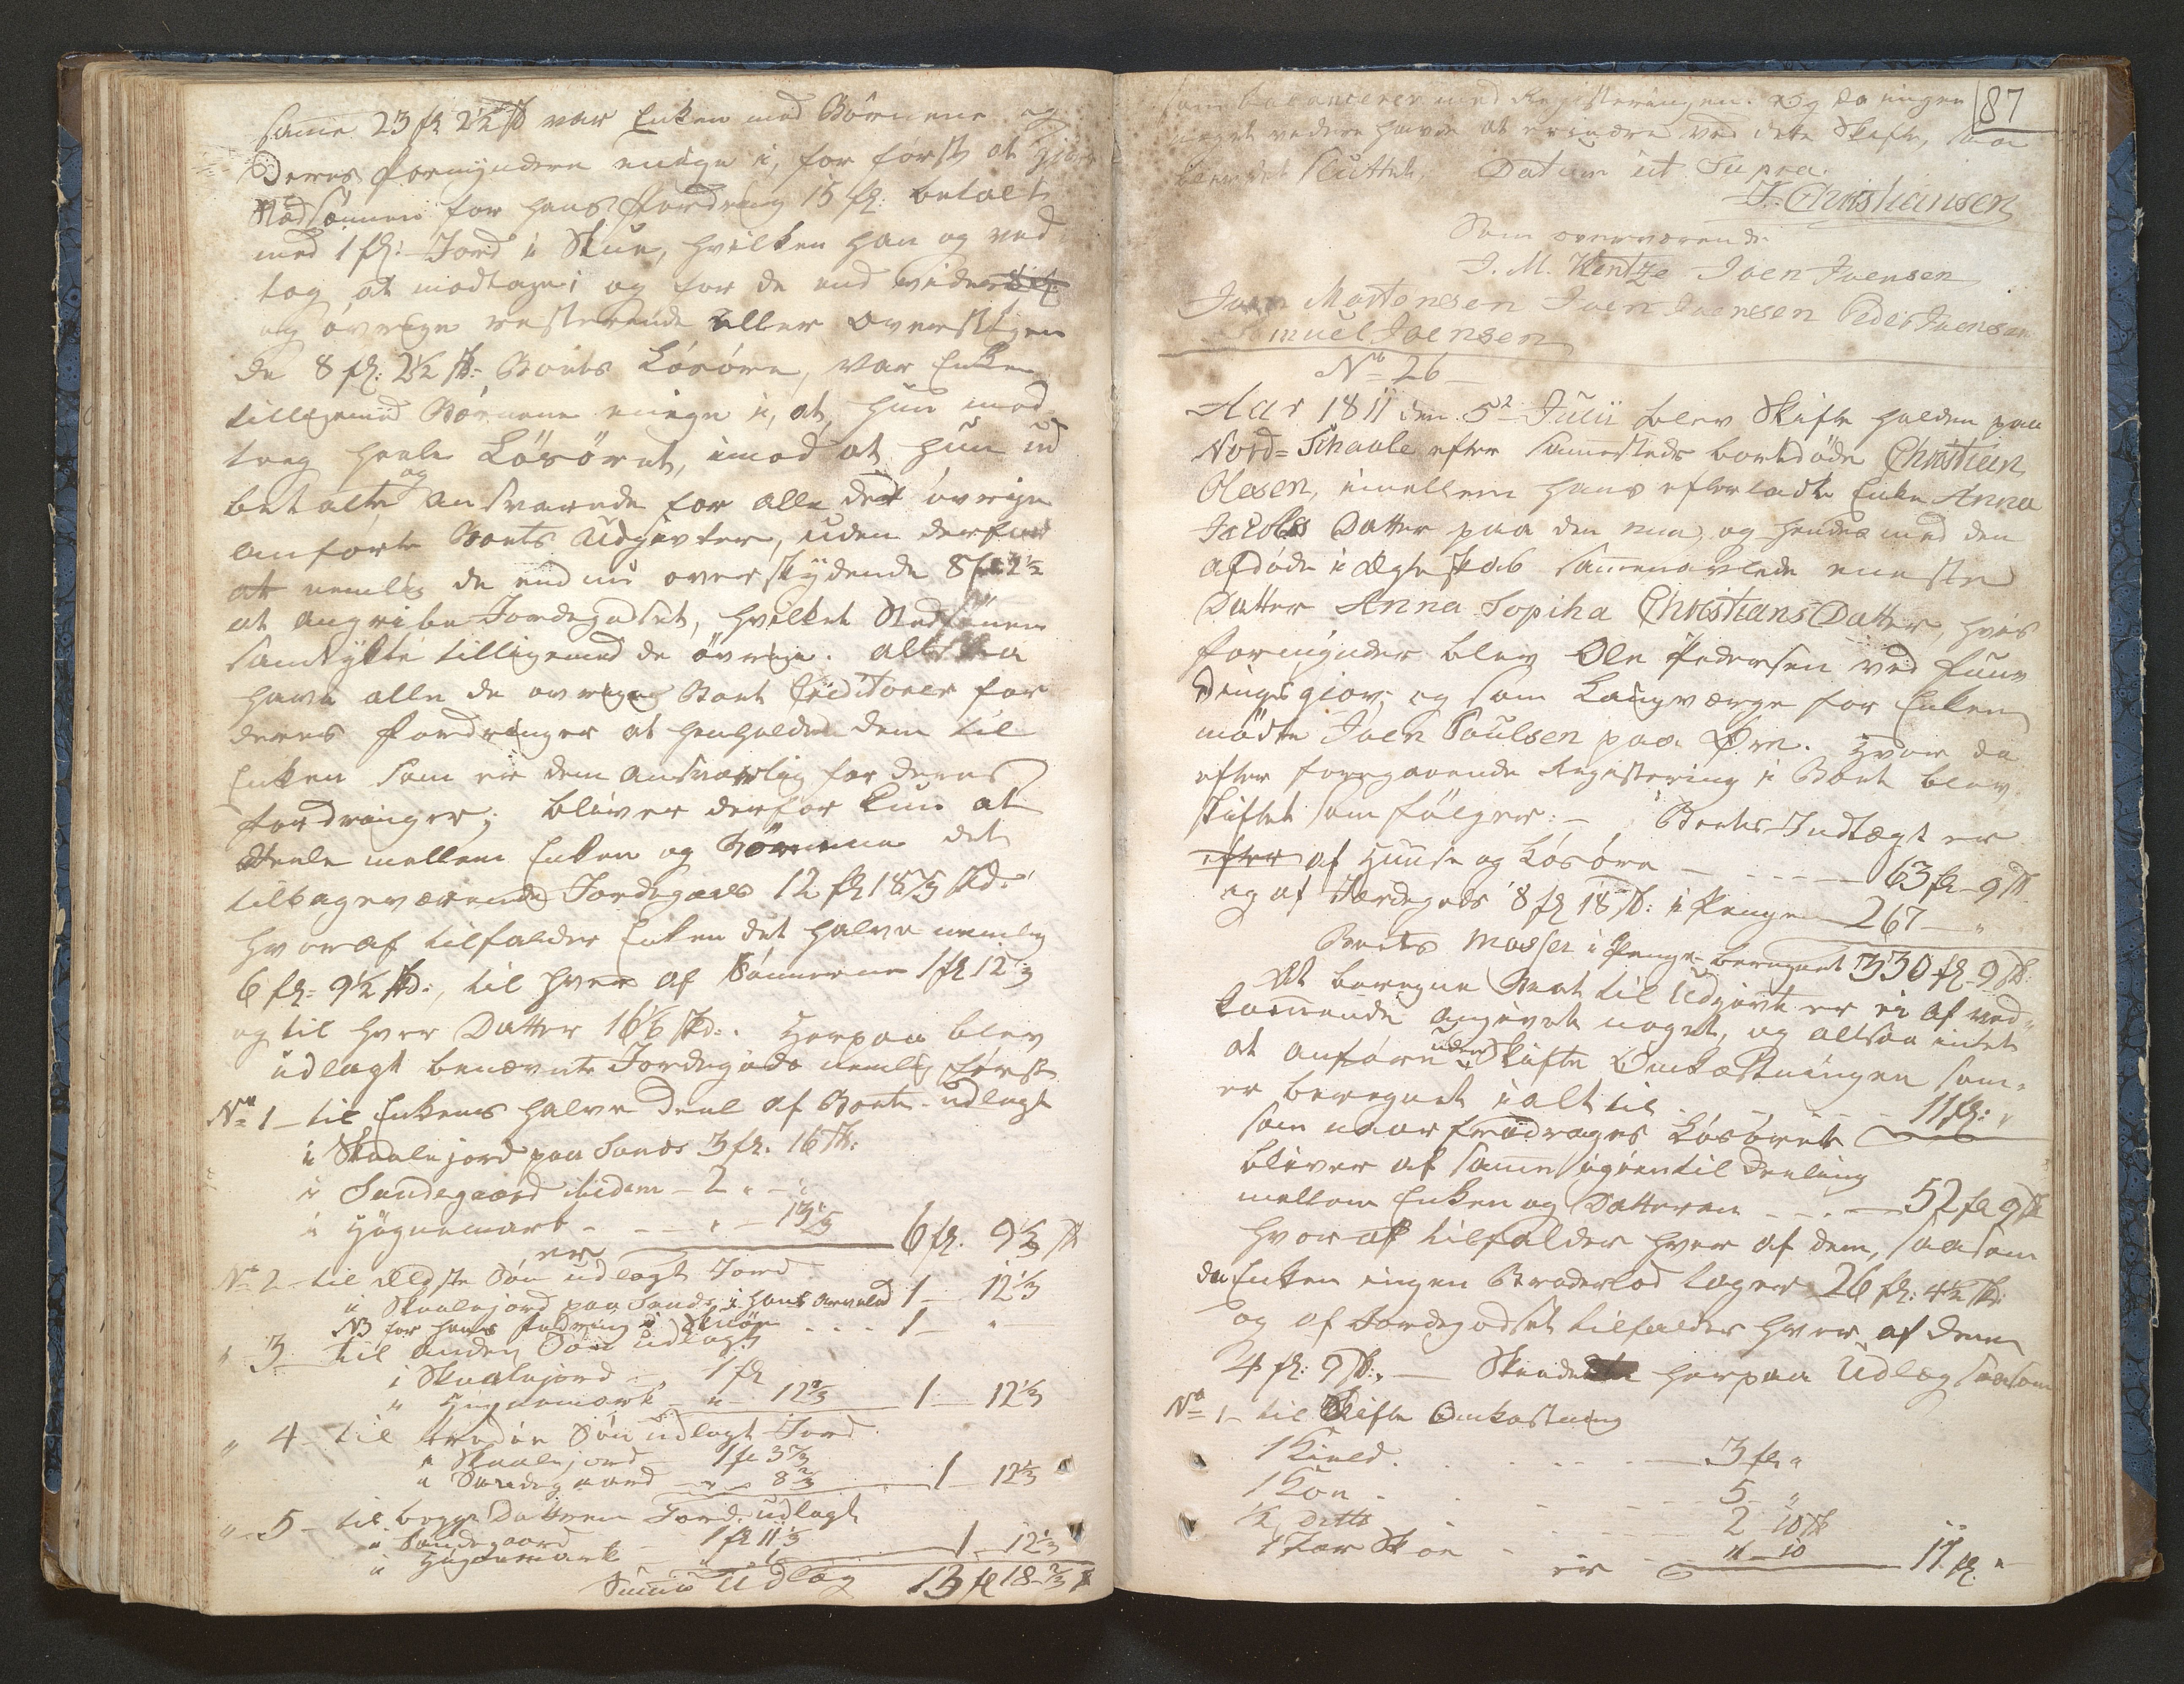 same 23 fl 2 1/2 ß var Enken med Börnene og
Deres Formyndere enige i, for först at giöre
Stedsönnen for hans Fordring 15 fl: betalt
med 1 fl: Jord i Skue, hvilken han og ved
tog at modtage; og for de end videre
og övrige resterende eller overskligen
de 8 fl: 2 1/2 ß: Boets Lösöre, var Enken
tilligemed Börnene enige i, at hun mod
toeg heele Lösöret, imod at hun ud
betalte og ansvarede for alle det övrige
anförte Boets Udgivter, uden derfor
at nemlig de endnu overskydende 8 fl: 2 1/2
at angribe Jordegodset, hvilket Stedsönnen
samtykte tilligemed de övrige. altsaa
have alle de övrige Boets Creditorer for
deres Fordringer at henholde dem til
Enken som er dem ansvarlig for deres
fordringer; bliver derfor kun at
Deele mellem Enken og Börnene det
tilbageværende Jordegods 12 fl 18 2/3 skd:
hvoraf tilfalder Enken det halve nemlig
6 fl: 9 1/3 skd:, til hver af Sönnerne 1 fl 12 1/3
og til hver Datter 16 1/6 skd:. Herpaa blev
udlagt benævnte Jordegods nemlig först
No 1 til Enkens halve Deel af Boet udlagt
i Skaalejord paa Sands 3 fl. 16 ß:
i Sandegaard ibidem - 2 " - "
i Högnemark - - - " - 13 1/3 6 fl. 9 1/3 ß
No 2 til ældste Sön er udlagt Jord
i Skaalejord paa Sande i hans arvelod 1 - 12 1/3
NB for hans Fordring i Skuöe - - - 1 - "
" 3 til anden Sön udlagt
i Skaalejord - 1 fl
" Högnemark - " - 12 1/3 1 - 12 1/3
" 4 til tredie Sön udlagt Jord
i Skaalejord 1 fl 3 2/3
" Sandegaard - " - 8 2/3 1 - 12 1/3
" 5 til begge Dattren Jord udlagt
i Sandegaard - 1 fl 11 1/3
i Högnemark - " 1 1 - 12 1/3
Summa Udlæg 13 fl 18 2/3 ß
87
som balancerer med Registeringen. Og da ingen
noget videre havde at erindre ved dette Skifte, saa
blev det Sluttet, Datum ut Supra.
J. Christiansen
Som overværende
J. M. Wentze Joen Joensen
Joen Mortensen Joen Joensen Peder Joensen
Samuel Joensen
No 26
Aar 1811 den 5te Julii blev Skifte holden paa
Nord=Schaale efter sammesteds bortdöde Christian
Olesen, imellem hans efterladte Enke Anna
Jacobs Datter paa den ene, og hendes med den
afdöde i Ægteskab sammenavlede eneste
Datter Anna Sopiha Christians Datter, hvis
formynder blev Ole Pedersen ved Funs
dingsgiov, og som Laugværge for Enken
mödte Joen Poulsen paa Öre. Hvor da
efter foregaaende Registering i Boet blev
skiftet som fölger: - Boets Indtægt er
efter af Huuse og Lösöre - - - - 63 fl - 9 ß
og af Jordegods 8 fl 18 ß: i Penge 267 - "
Boets Masse i Penge beregnet 330 fl - 9 ß:
At beregne Boet til Udgivt er ei af ved-
kommende angivet noget, og altsaa intet
at anföre uden Skifte Omkostningen som
er beregnet i alt til - - - - 11 fl: "
som naar fradrages Lösöret
bliver af samme igien til Deeling
mellem Enken og Datteren - - - 52 fl 9 ß
hvoraf tilfalder hver af dem, saasom
da Enken ingen Broderlod tager 26 fl: 4 1/2 ß:
og af Jordegodset tilfalder hver af dem
4 fl: 9 ß:, - Skeede herpaa Udlæg saasom
No 1 - til Skifte Omkostning
1 Kield - - - - 3 fl "
1 Koe - - - 5 "
1/2 Ditto - - - 2 - 10 ß
1 Foer Skoe - - " - 10
er 11 fl. "